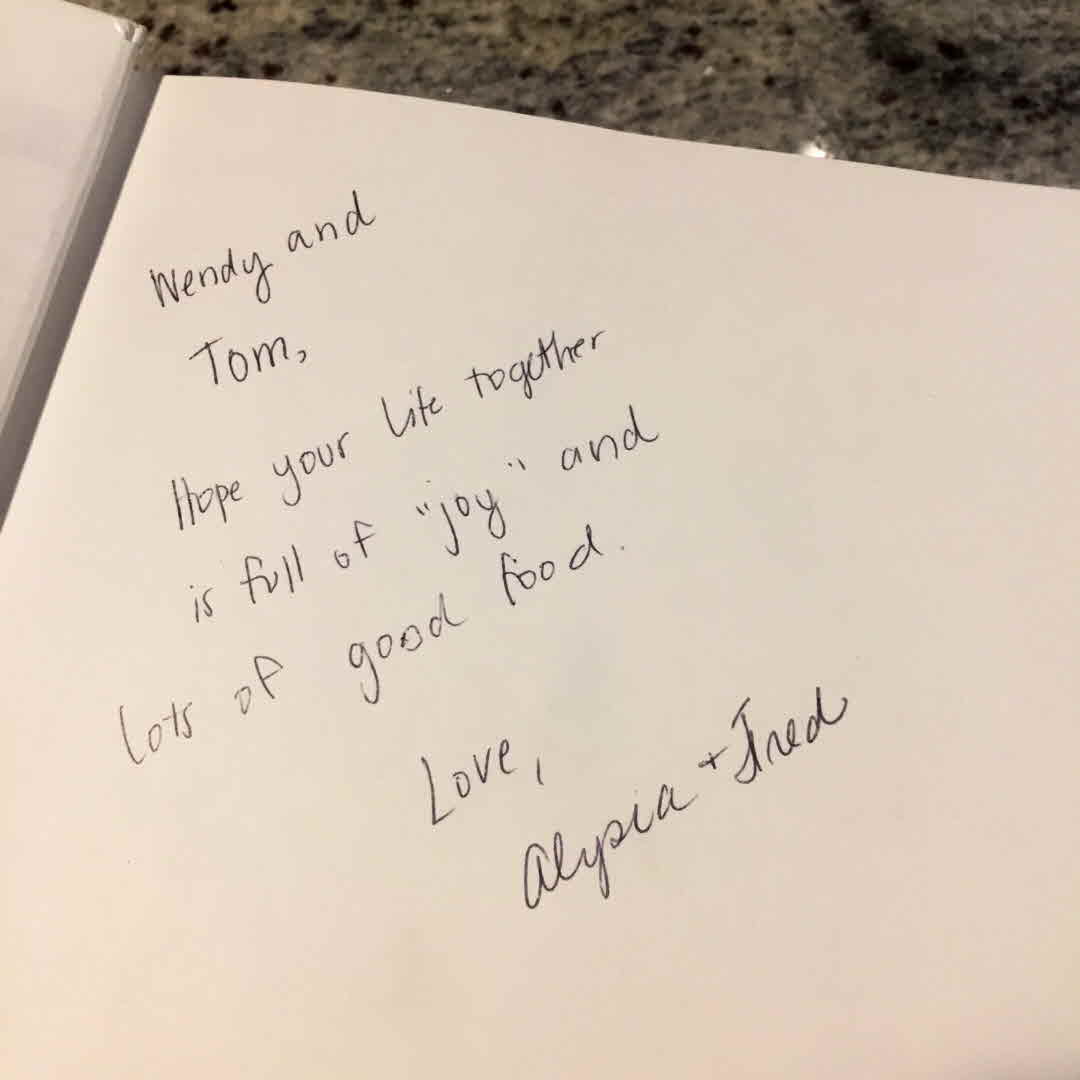 Wendy and
Tom,
Hope your life together
is full of "joy" and
lots of good food.
Love,
Alysia + Fred